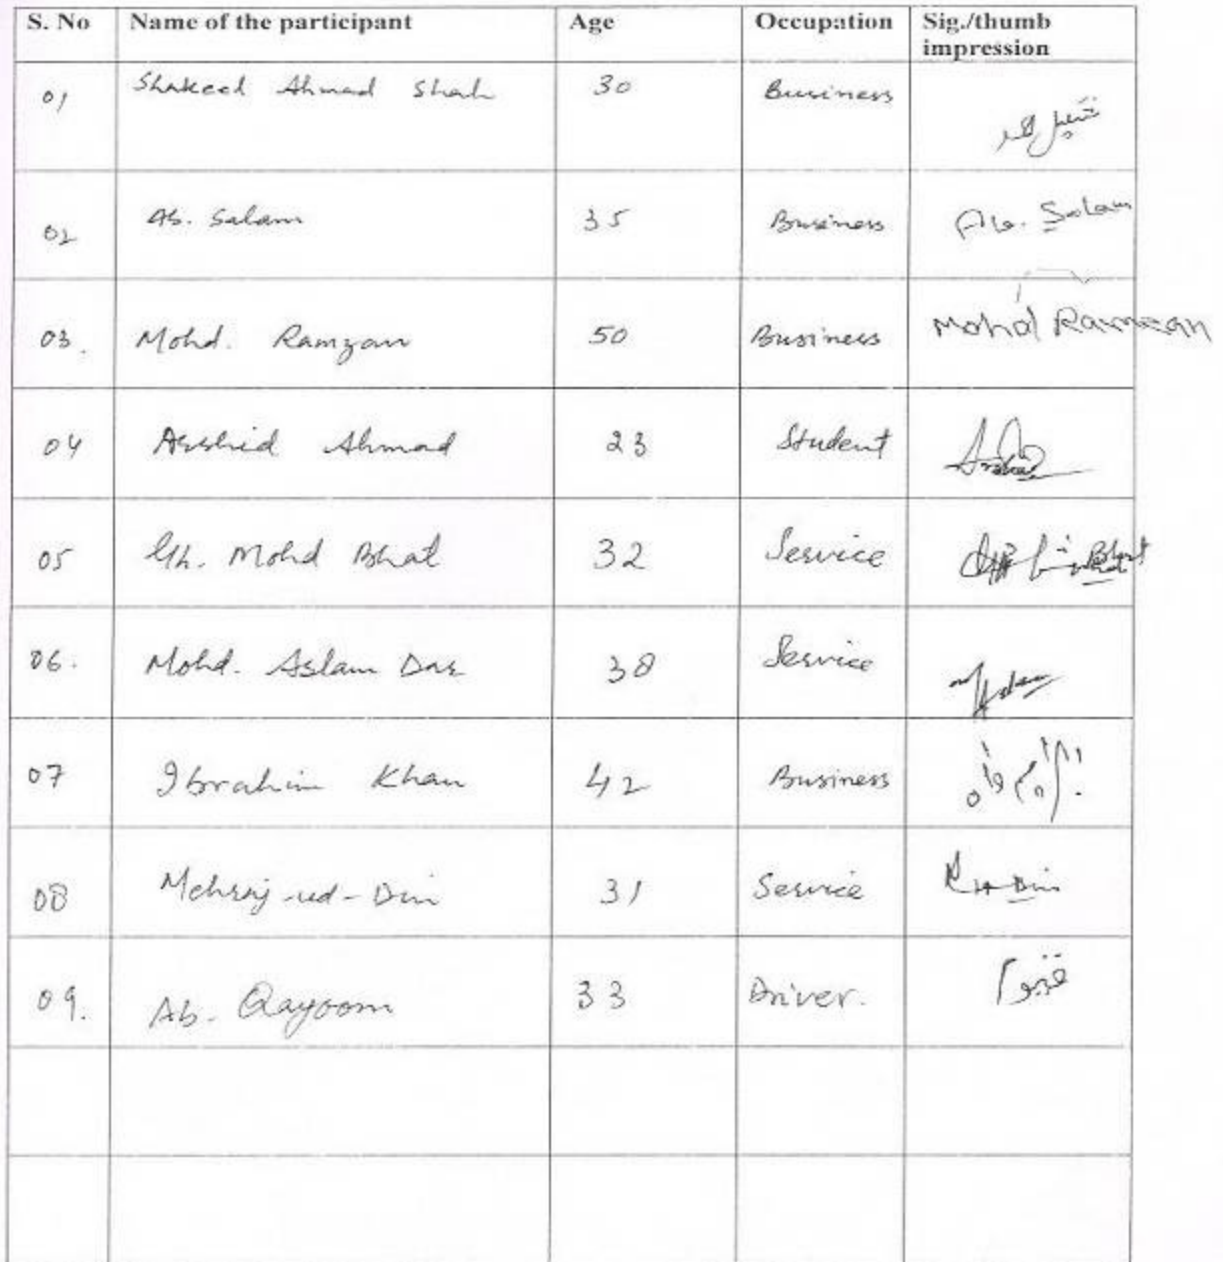 S. No Name of the participant Age Occupation Sig./thumb
impression
01 Shakeel Ahmad Shah 30 Business شکیل احمد
02 Ab. Salam 35 Business Ab. Salam
03. Mohd. Ramzan 50 Business Mohd Ramzan
04 Arshid Ahmad 23 Student
05 Gh. Mohd Bhat 32 Service Bhat
06. Mohd. Aslam Dar 38 Service
07 Ibrahim Khan 42 Business
08 Mehraj-ud-Din 31 Service Din
09. Ab. Qayoom 33 Driver. قیوم